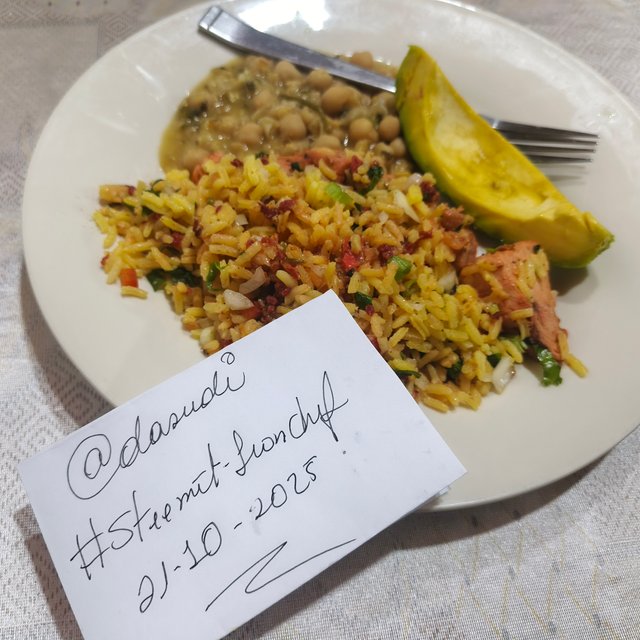 @dasudi
#Steemit-Ironchef
21-10-2025